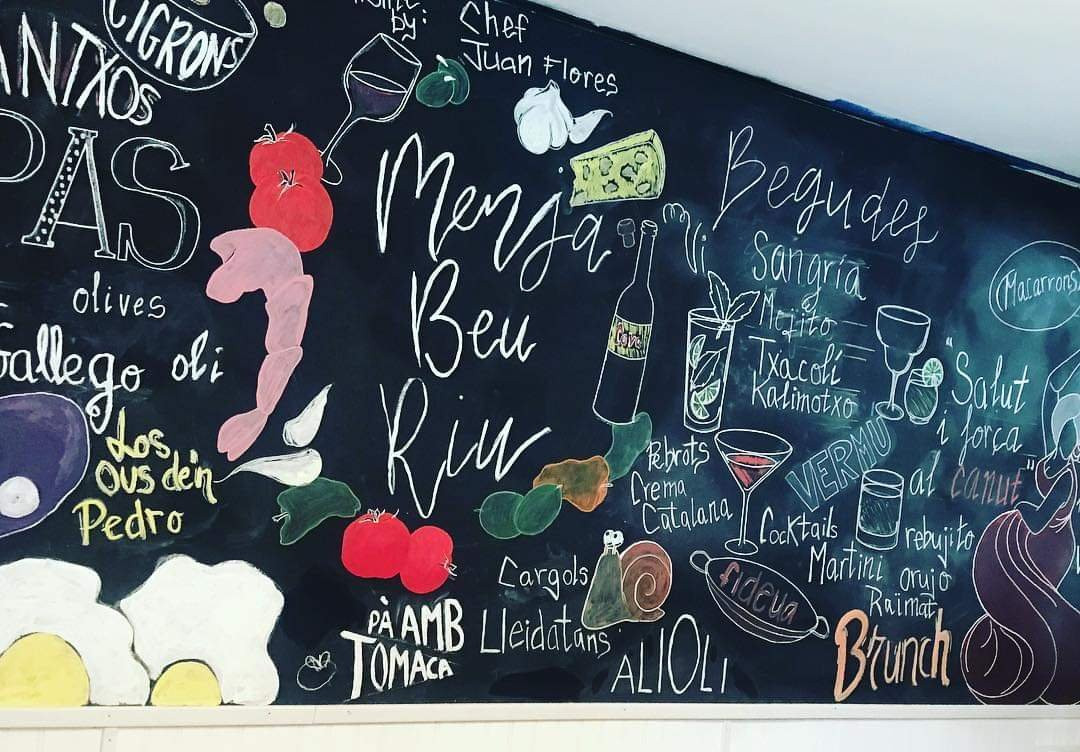 CIGRONS
ANTXOS
PAS
olives
Gallego oli
Los
Ous de'n
Pedro
by:
Chef
Juan Flores
Menja
Beu
Riu
PÀ AMB
TOMACA
Vi
Cava
Begudes
Sangría
Mojito
Txacoli
Kalimotxo
VERMU
Pebrots
Crema
Catalana
Cocktails
Martini
orujo
Raïmat
rebujito
Cargols
Lleidatans
fideua
ALIOLI
Brunch
Macarrons
"Salut
i força
al canut"